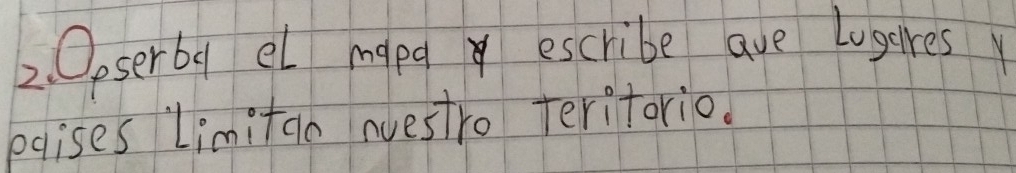 2. Opserba el mapa y escribe que Lugares y
paises Limitan nuestro Teritorio.